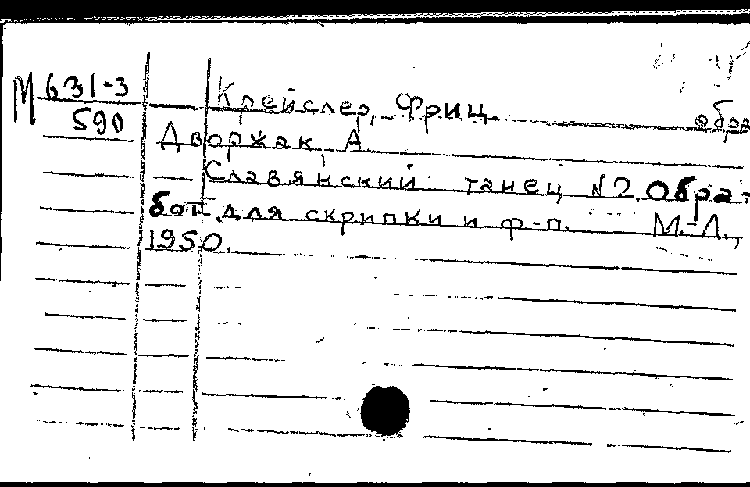 М 631-3 Крейслер, Фриц. обра
590 Дворжак, А.
Славянский танец №2. Обра-
бот. для скрипки и ф-п. М.-Л.,
1950.